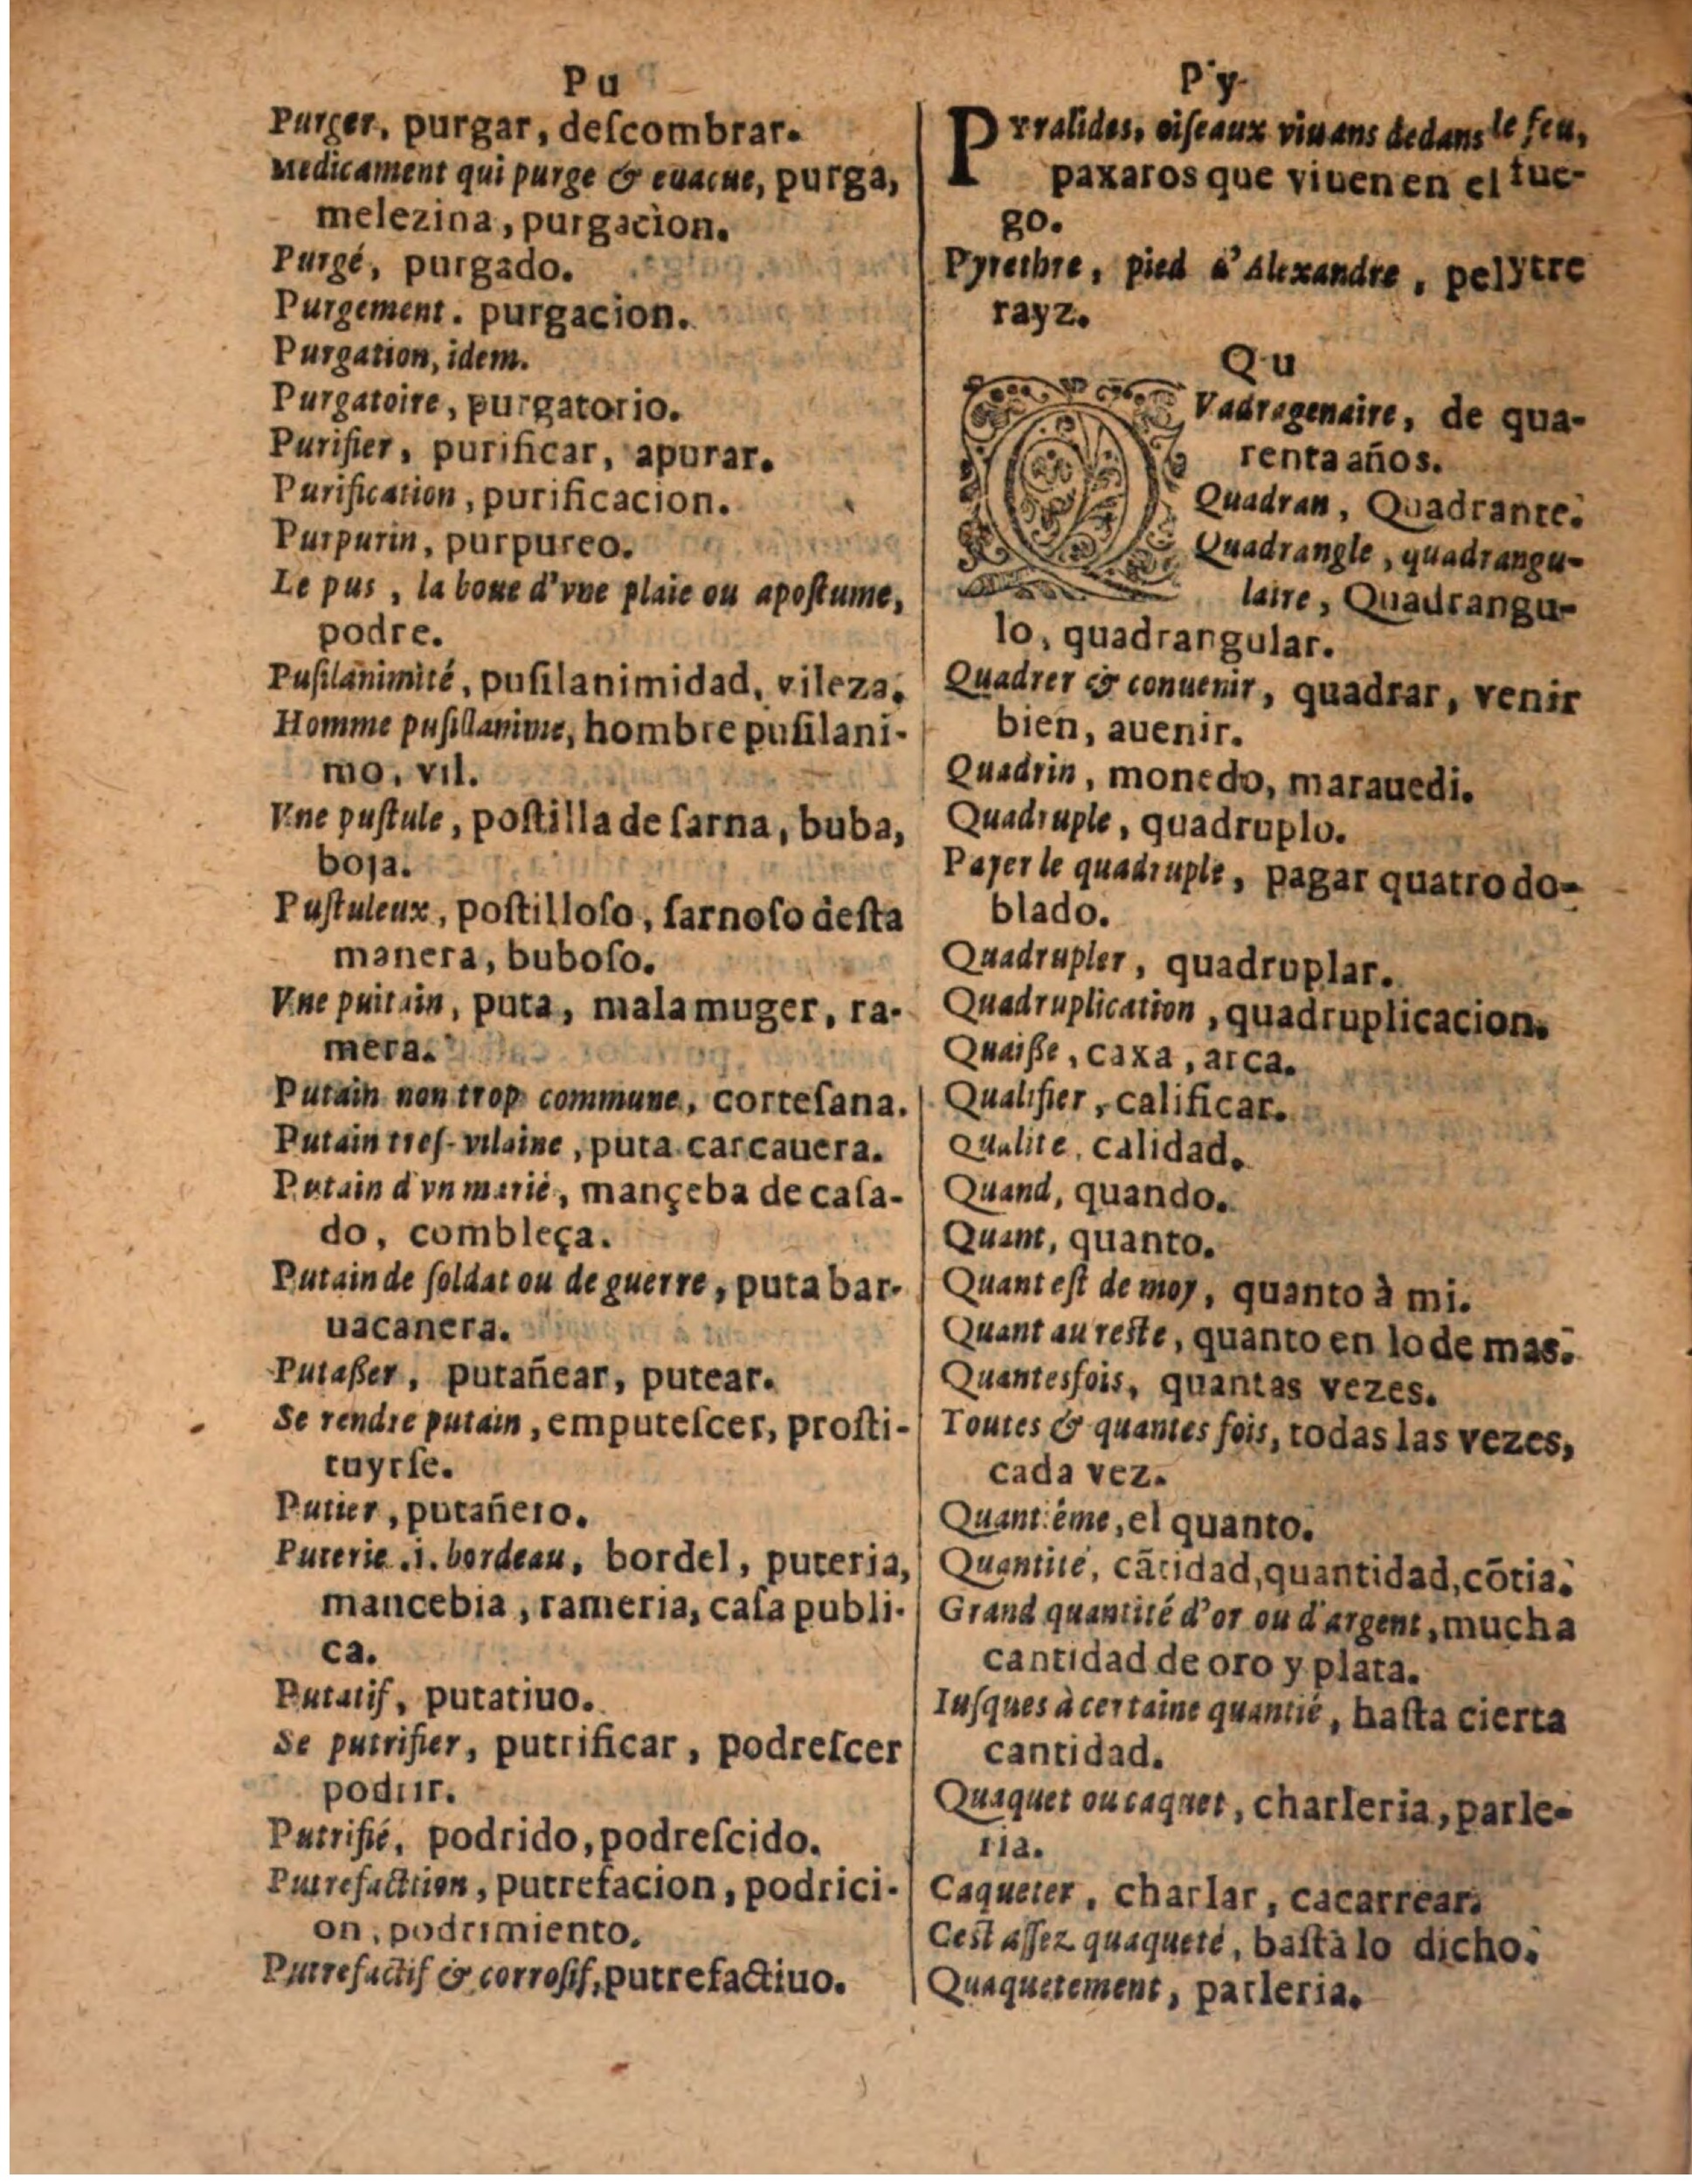 Pu
Purger, purgar, deſcombrar.
Medicament qui purge & euacue, purga,
melezina, purgacion.
Purgé, purgado.
Purgement. purgacion.
Purgation, idem.
Purgatoire, purgatorio.
Purifier, purificar, apurar.
Purification, purificacion.
Purpurin, purpureo.
Le pus, la boue d'vne plaie ou apoſtume,
podre.
Puſilanimité, puſilanimidad, vileza.
Homme puſillanime, hombre puſilani-
mo, vil.
Vne puſtule, poſtilla de ſarna, buba,
boja.
Puſtuleux, poſtilloſo, ſarnoſo deſta
manera, buboſo.
Vne puitain, puta, mala muger, ra-
mera.
Putain non trop commune, corteſana.
Putain treſ-vilaine, puta carcauera.
Putain d'vn marié, mançeba de caſa-
do, combleça.
Putain de ſoldat ou de guerre, puta bar-
uacanera.
Putaßer, putañear, putear.
Se rendre putain, emputeſcer, proſti-
tuyrſe.
Putier, putañero.
Puterie .i. bordeau, bordel, puteria,
mancebia, rameria, caſa publi-
ca.
Putatif, putatiuo.
Se putrifier, putrificar, podreſcer
podrir.
Putrifié, podrido, podreſcido.
Putrefacttion, putrefacion, podrici-
on, podrimiento.
Putrefactif & corroſif, putrefactiuo.
Py
PYralides, oiſeaux viuans dedans le feu,
paxaros que viuen en el fue-
go.
Pyrethre, pied d'Alexandre, pelytre
rayz.
Qu
QVadragenaire, de qua-
renta años.
Quadran, Quadrante.
Quadrangle, quadrangu-
laire, Quadrangu-
lo, quadrangular.
Quadrer & conuenir, quadrar, venir
bien, auenir.
Quadrin, monedo, marauedi.
Quadruple, quadruplo.
Payer le quadruple, pagar quatro do-
blado.
Quadrupler, quadruplar.
Quadruplication, quadruplicacion.
Quaiße, caxa, arca.
Qualifier, calificar.
Qualite, calidad.
Quand, quando.
Quant, quanto.
Quant eſt de moy, quanto à mi.
Quant au reſte, quanto en lo de mas.
Quantesfois, quantas vezes.
Toutes & quantes fois, todas las vezes,
cada vez.
Quantiéme, el quanto.
Quantité, cãtidad, quantidad, cõtia.
Grand quantité d'or ou d'argent, mucha
cantidad de oro y plata.
Iuſques à certaine quantié, haſta cierta
cantidad.
Quaquet ou caquet, charleria, parle-
ria.
Caqueter, charlar, cacarrear.
Ceſt aſſez quaqueté, baſta lo dicho.
Quaquetement, parleria.